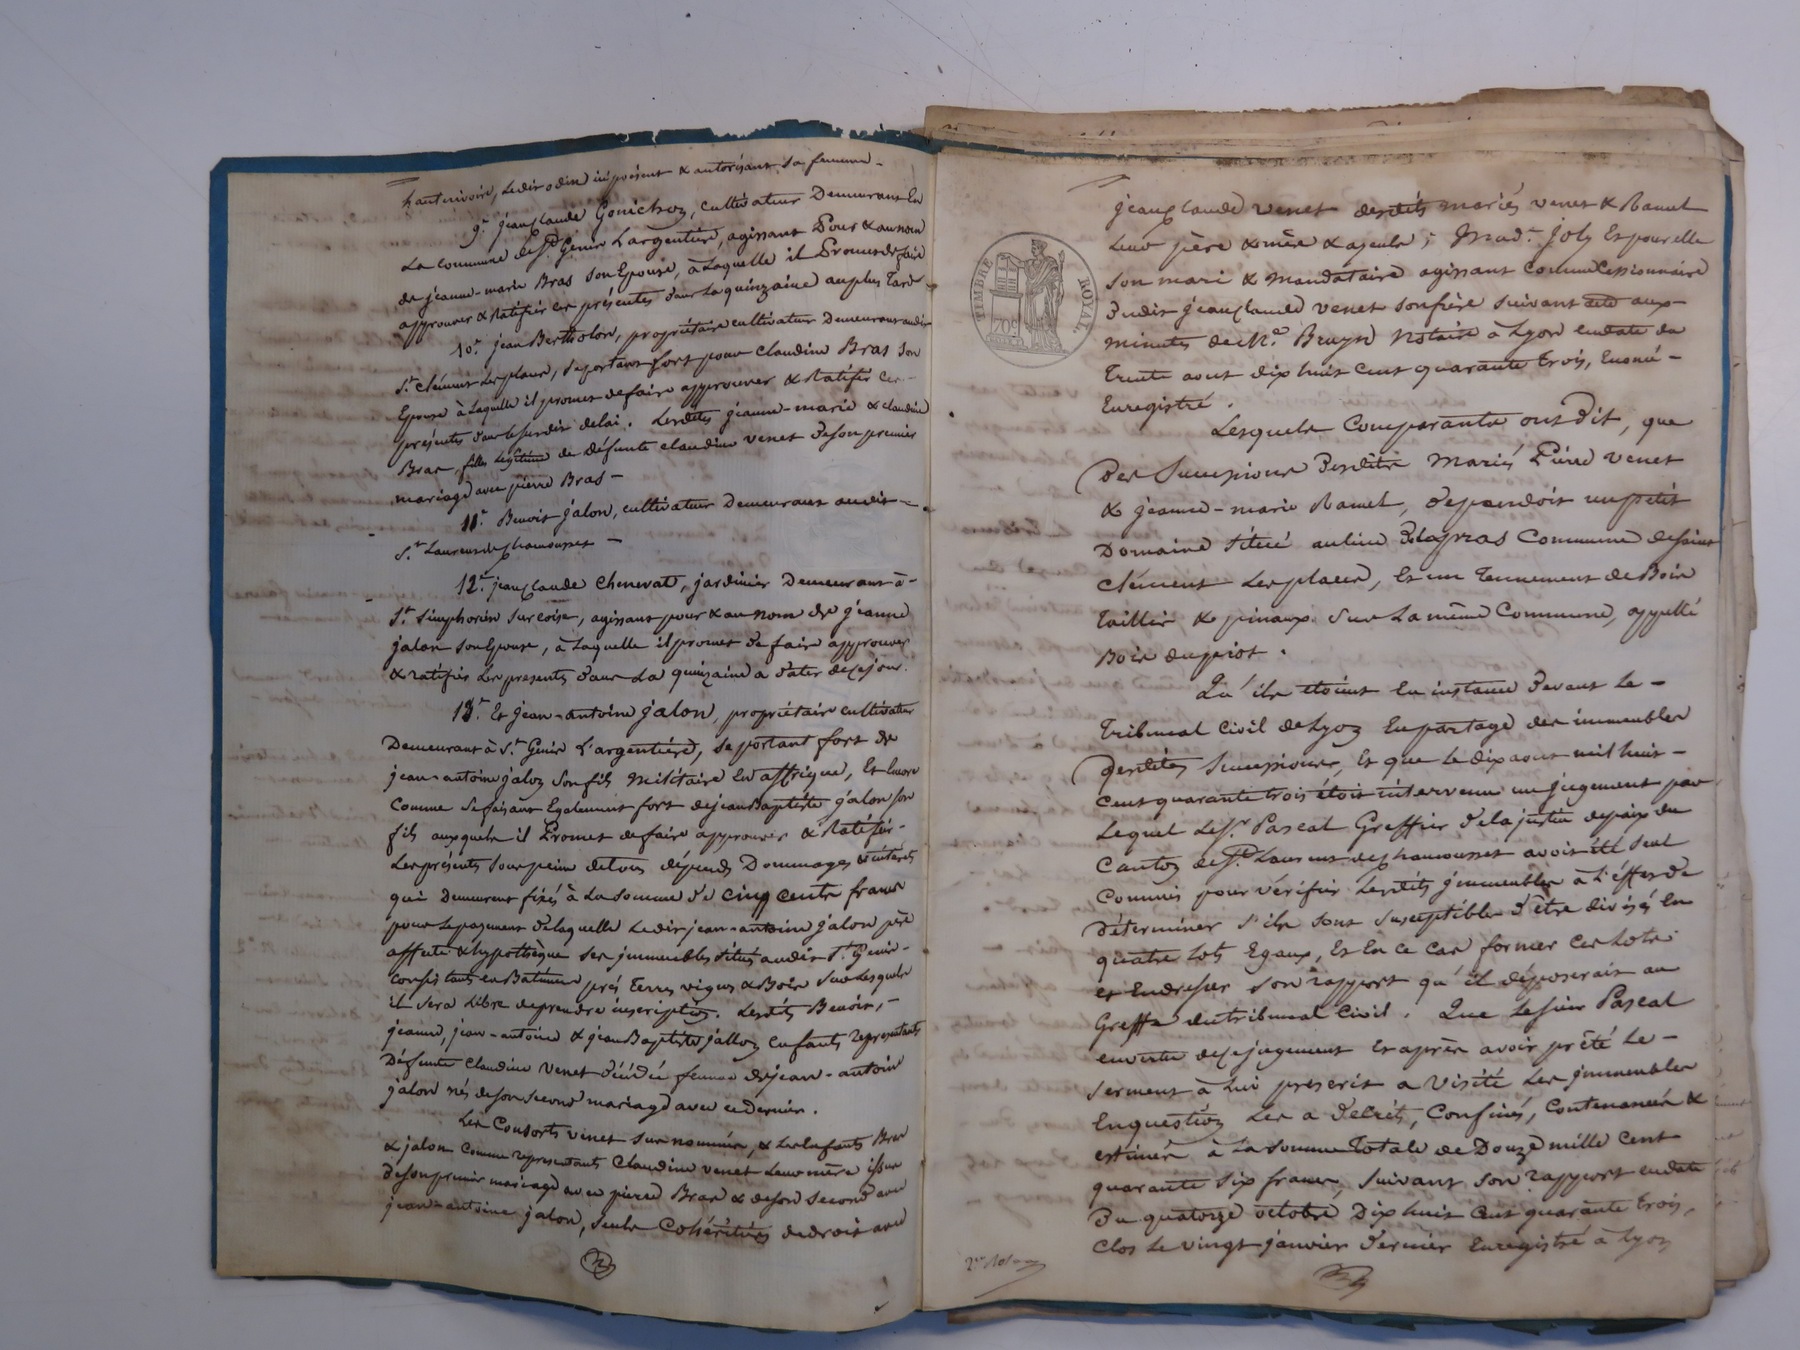 hauterivoire, ledit odin ici présent & autorisant sa femme -
9.° jean Claude Gonichon, cultivateur Demeurant En
La commune de S.t Genis L'argentière, agissant Pour & au nom
de jeanne-marie Bras son Epouse, à Laquelle il Promet de faire
approuver & Ratifier ces présentes dans La quinzaine au plus Tard
10.° jean Bertholon, propriétaire cultivateur Demeurant audit
S.t Clément Les places, se portant fort pour Claudine Bras son
Epouse à Laquelle il promet de faire approuver & Ratifier ces -
présentes dans le susdit délai. Lesdites jeanne-marie & claudine
Bras, filles Légitimes de défunte claudine venet de son premier
mariage avec pierre Bras -
11.° Benoit jalon, cultivateur Demeurant audit -
S.t Laurent de chamousset -
12.° jean Claude Chenevat, jardinier Demeurant à -
S.t Simphorien sur coise, agissant pour & au nom de jeanne
jalon son Epouse, à Laquelle il promet de faire approuver
& ratifier Les presentes dans La quinzaine a dater de ce jour.
13.° Et jean-antoine jalon, propriétaire cultivateur
Demeurant à S.t Genis L'argentière, se portant fort de
jean-antoine jalon son fils militaire En affrique, Et Encore
Comme se faisant Egalement fort de jean Baptiste jalon son
fils auxquels il Promet de faire approuver & Ratifier -
Les présentes sous peine de tous dépends Dommages & intérêts
qui Demeurent fixés à La somme de cinq cents francs
pour Le payement de laquelle Ledit jean-antoine jalon père
affecte & hypothèque ses immeubles situés audit S.t Genis -
consistants en Batiments prés Terres vignes & Bois sur Lesquels
il sera Libre de prendre inscription. Lesdits Benoit, -
jeanne, jean-antoine & jean Baptiste jallon enfants représentants
Défunte Claudine Venet décédée femme de jean-antoine
jalon nés de son second mariage avec ce dernier.
Les Consorts venet surnommés, & Les Enfants Bras
& jalon comme représentants Claudine venet Leur mère issus
de son premier mariage avec pierre Bras & de son second avec
jean-antoine jalon, seuls Cohéritiers de droit avec
jean Claude venet desdits mariés venet & Ramel
Leur père & mère & ayeuls; Mad.e Joly Et pour elle
son mari & Mandataire agissant comme Cessionnaire
dudit jean Claude venet son frère suivant acte aux -
minutes de M.e Bruyn Notaire à Lyon en date du
Trente aout dix huit Cent quarante Trois, Enoncé -
Enregistré.
TIMBRE ROYAL
70c
Lesquels Comparants ont Dit, que
Des Successions desdits Mariés Pierre Venet
& jeanne-marie Ramel, dépendoit un petit
Domaine situé au lieu commune de saint
Clément Les places, Et un Tennement de Bois
Taillis & pinaux sur La même Commune, appellé
Bois du
Qu'ils étoient En instance Devant Le -
Tribunal Civil de Lyon En partage des immeubles
desdites Successions, Et que Le dix aout mil huit -
Cent quarante trois étoit intervenu un jugement par
Lequel Le S.r Pascal Greffier de la justice de paix du
Canton de S.t Laurent de chamousset avoit été seul
Commis pour vérifier Lesdits immeubles à L'éffet de
Déterminer s'ils sont susceptibles d'être divisés En
quatre Lots Egaux, Et En ce Cas former ces Lots
et En dresser son rapport qu'il déposerait au
Greffe du tribunal Civil. Que Le sieur Pascal
en vertu de ce jugement Et après avoir prêté Le -
serment à Lui prescrit a Visité Les immeubles
En question Les a décrits, confinés, contenancés &
estimés à La somme Totale de Douze mille Cent
quarante Six francs, suivant son rapport en date
Du quatorze octobre Dix huit Cent quarante trois,
Clos Le vingt janvier dernier Enregistré à Lyon